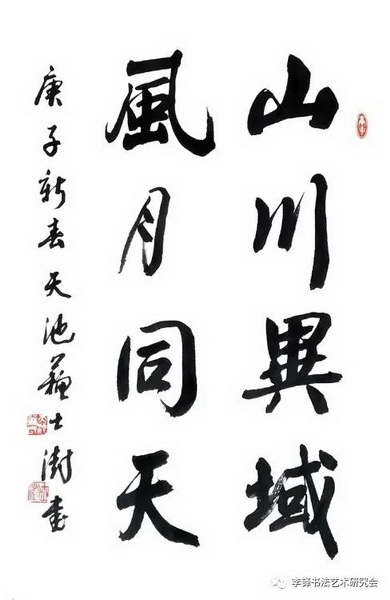 山川異域
風月同天
庚子新春天池蘇士澍書
李铎书法艺术研究会